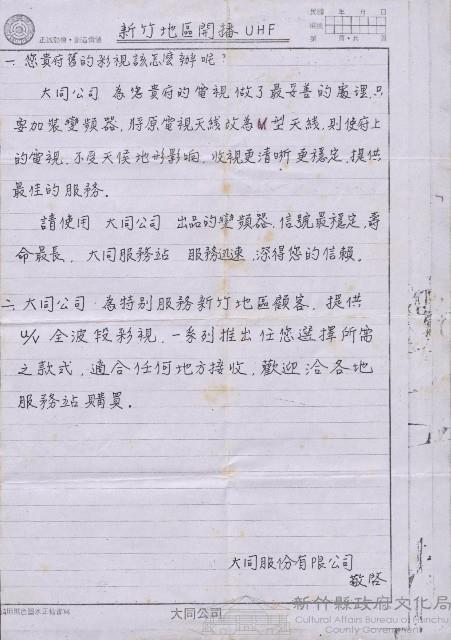 正誠勤儉・創造價值
新竹地區開播UHF
民國 年 月 日
編號
第 頁・共 頁
一、您貴府舊的彩視該怎麼辦呢?
大同公司 為您貴府的電視做了最妥善的處理,只
要加裝變頻器,將原電視天線改為U型天線,則使府上
的電視,不受天侯地形影响,收視更清晰更穩定,提供
最佳的服務.
請使用 大同公司 出品的變頻器,信號最穩定,壽
命最長,大同服務站 服務迅速,深得您的信賴.
二、大同公司 為特別服務新竹地區顧客,提供
U/V 全波段彩視,一系列推出任您選擇所需
之款式,適合任何地方接收,歡迎洽各地
服務站購買.
大同股份有限公司
敬啓
請用黑色墨水正楷書寫
大同公司
新竹縣政府文化局
Cultural Affairs Bureau of Hsinchu
County Government